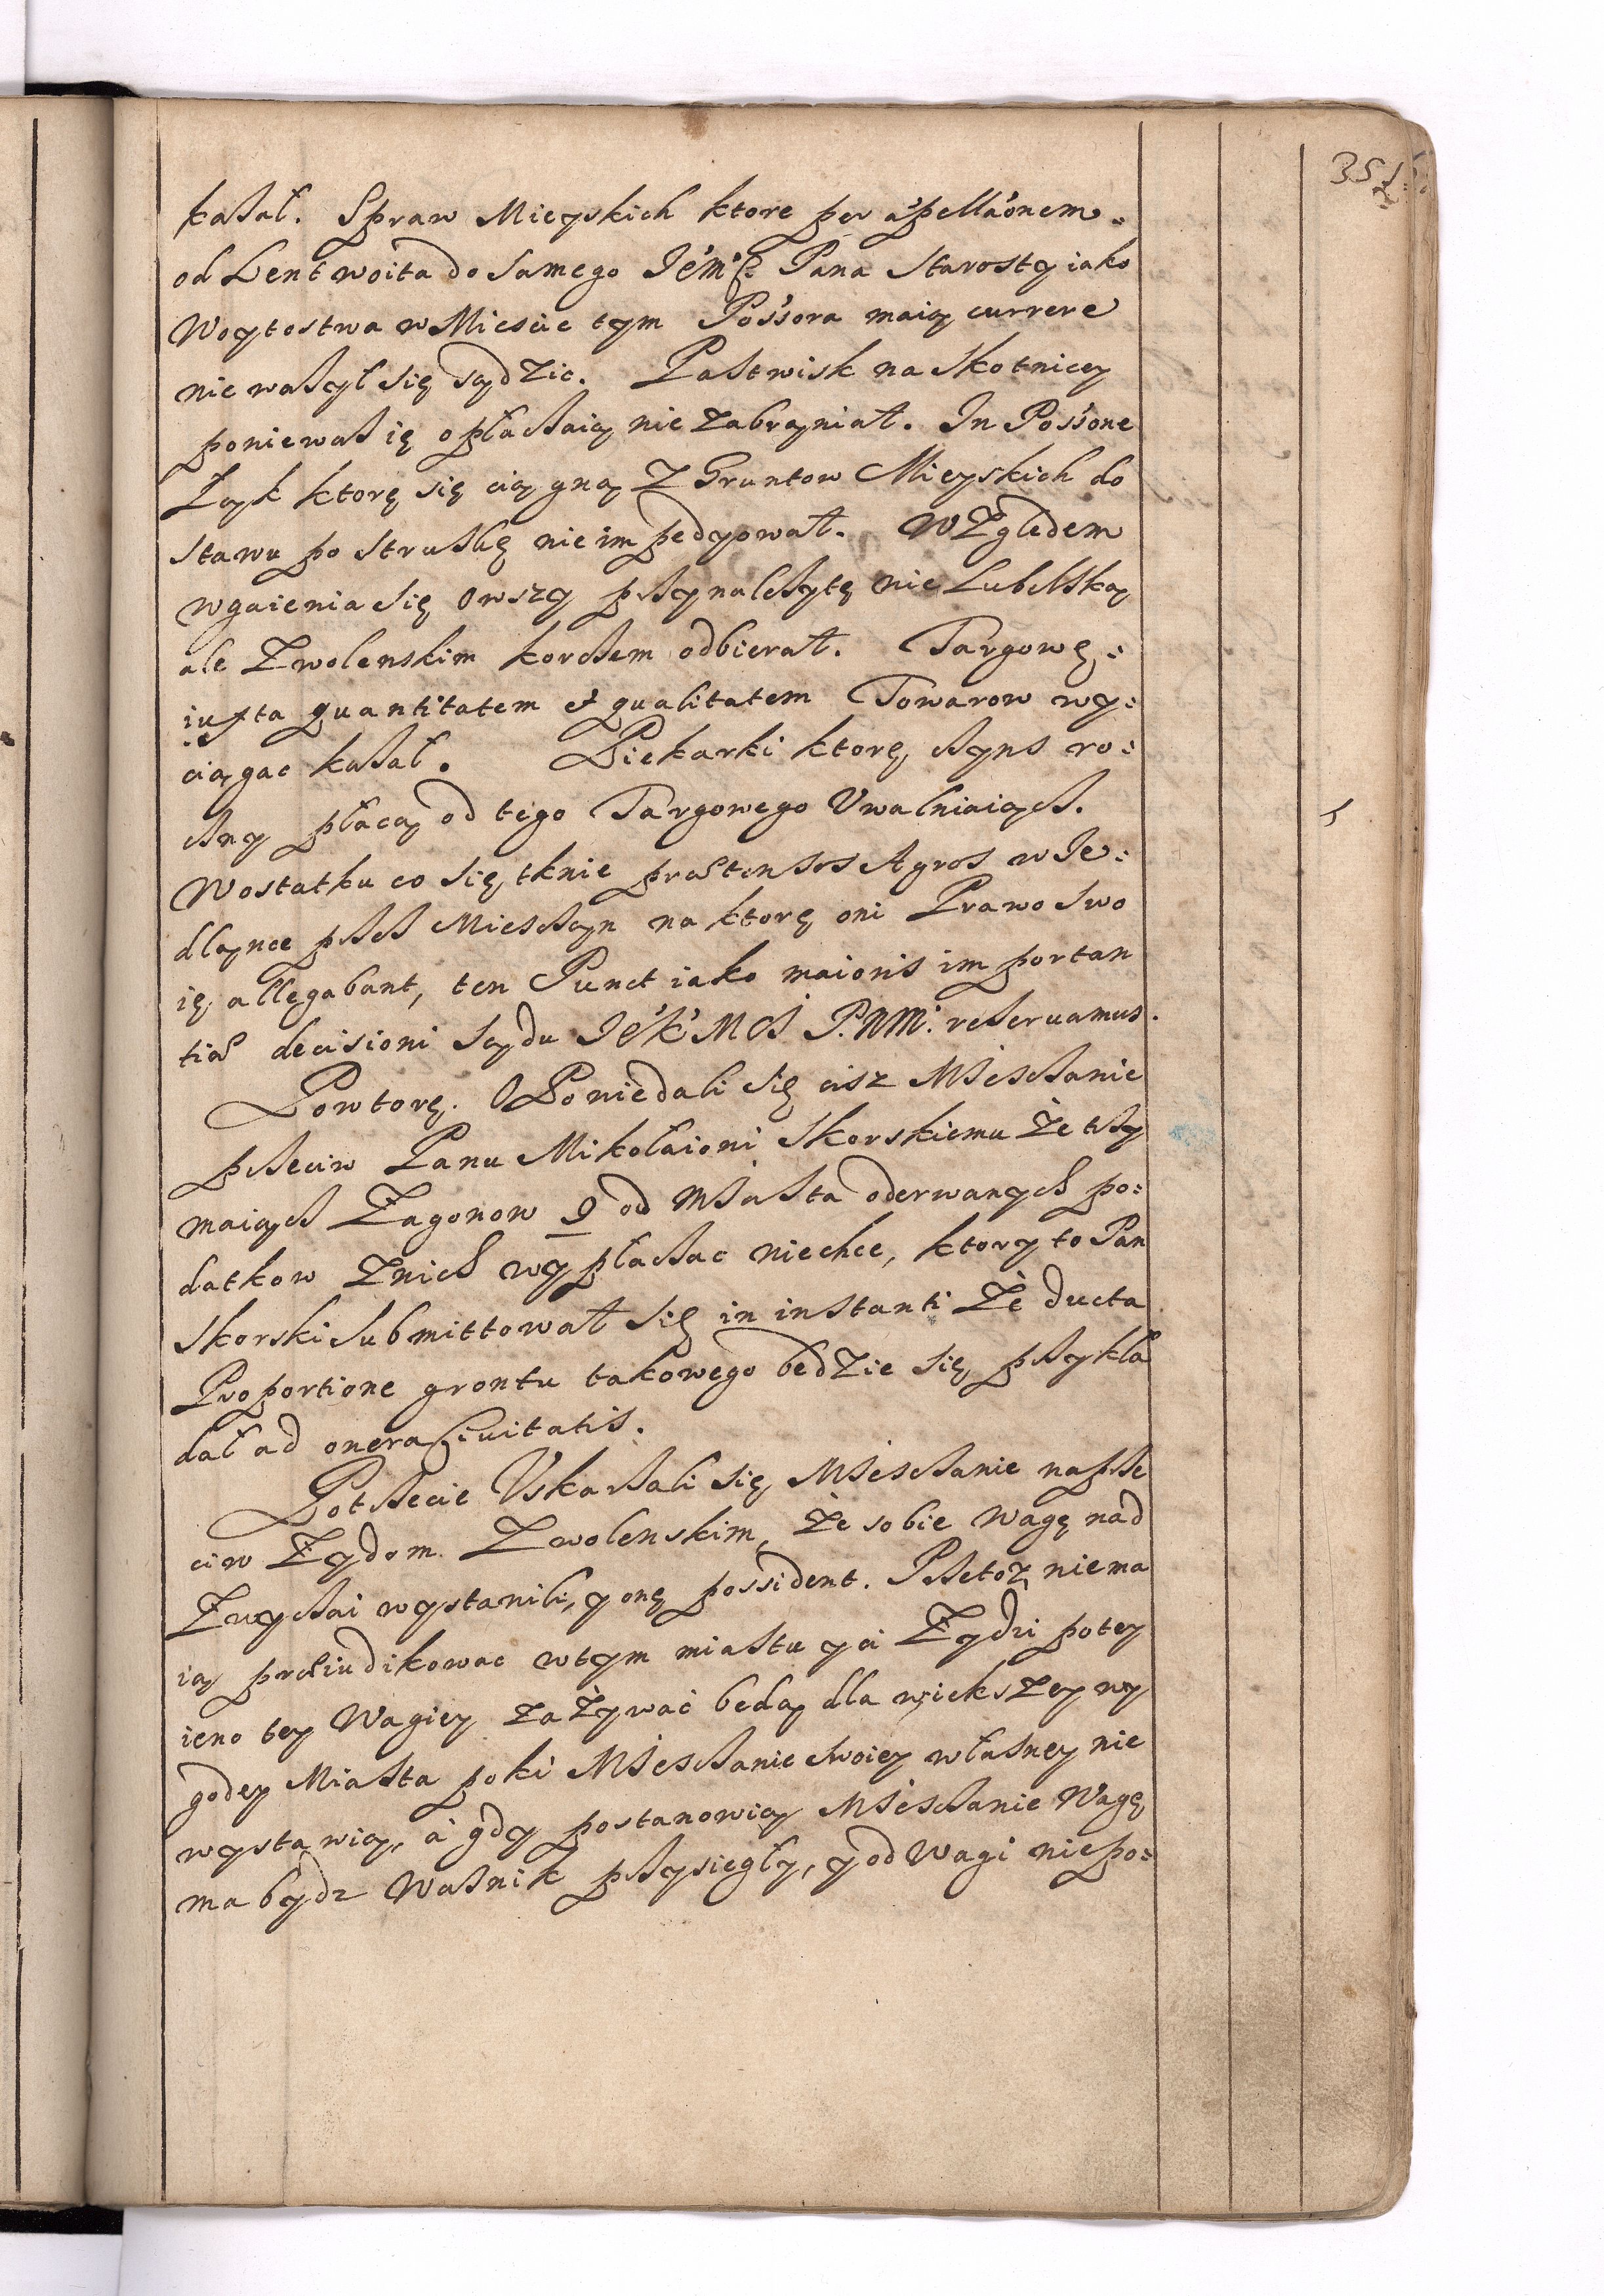 351
kazał. Spraw Mieyskich ktore per appellaonem
od Lentwoita do samego JeMci Pana Starosty iako
Woytostwa w Miescie tym Possora maią currere
nie wazył się sądzic. Pastwisk na Skotnicy
poniewaz ię opłaczaią nie zabraniał. In Possone
Łąk ktorę się ciągną z Gruntow Mieyskich do
stawu po struszkę nie impedyował. Względem
wgaienia się owszy przynalezytę nie Lubelską
ale Zwolenskim korczem odbierał. Targowę
iuxta quantitatem et qualitatem Towarow wy:
ciągac kazał. Piekarki ktorę czyns ro:
czny płacą od tego Targowego Uwalniaiącz.
Wostatku co się tknie praetensos Agros w Je:
dlance przez Miesczan na ktorę oni Prawo swo
ię allegabant, ten Punct iako maioris importan
tiae decisioni sądu JeK Mci P. N M. reseruamus.
Powtorę. Opowiedali się cisz Miesczanie
przeciw Panu Mikołaiowi Skorskiemu że trzy
maiącz Zagonow 9 od Miasta oderwanych po:
datkow znich wypłaczac niechce, ktory to Pan
Skorski submittował się in instanti że ducta
Proportione grontu takowego bedzie się przykła
dał ad onera Ciuitatis.
Potrzecie Uskarzali się Miesczanie naprze
ciw Zydom Zwolenskim, że sobie Wagę nad
Zwyczai wystawili, y onę possident. Przetoz niema
ią praeiudikowac wtym miastu y ci Zydzi potey
ieno tey Wagiey zażywać bedą dla wiekszey wy
godey Miasta poki Miesczanie swoiey własney nie
wystawią, a gdy postanowią Miesczanie Wagę
ma bydz Waznik przysiegły, y od Wagi nie po: